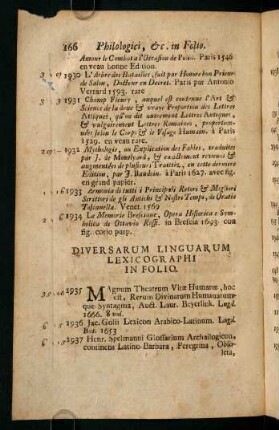 166 Philologici, &c. in Folio.
Amour le Combat a l'Oraison de Pein. Paris 1546
en veau bonne Edition.
1930 L'Arbre des Batailles, fait par Honoré bon Prieur
de Salon, Docteur en Decret. Paris par Antonio
Verard 1593. rare
1931 Champ Fleury, auquel est contenue l'Art &
Science de la deue & vraye Proportion des Lettres
Attiques, qu'on dit autrement Lettres Antiques,
& vulgairement Lettres Romaines, proportion-
nées selon le Corps & le Visage Humain. à Paris
1529. en veau rare.
1932 Mythologie, ou Explication des Fables, traduites
par J. de Montlyard, & exactement reveuë &
augmentée de plusieurs Traittez, en cette derniere
Edition, par J. Baudoin. à Paris 1627. avec fig.
en grand papier.
1933 Armonia di tutti i Principali Retori & Migliori
Scrittori de gli Antichi & Nostri Tempi, di Oratio
Toscanella. Venet. 1569
1934 Le Memorie Bresciane, Opera Historica e Sim-
bolica di Ottavio Rossi. in Brescia 1693. con
fig. corio purp.
DIVERSARUM LINGUARUM
LEXICOGRAPHI
IN FOLIO.
1935 MAgnum Theatrum Vitæ Humanæ, hoc
est, Rerum Divinarum Humanarum-
que Syntagma, Auct. Laur. Beyerlick. Lugd.
1666. 8 vol.
1936 Jac. Golii Lexicon Arabico-Latinum. Lugd.
Bat. 1653
1937 Henr. Spelmanni Glossarium Archailogicum,
continens Latino-Barbara, Peregrina, Obso-
leta,